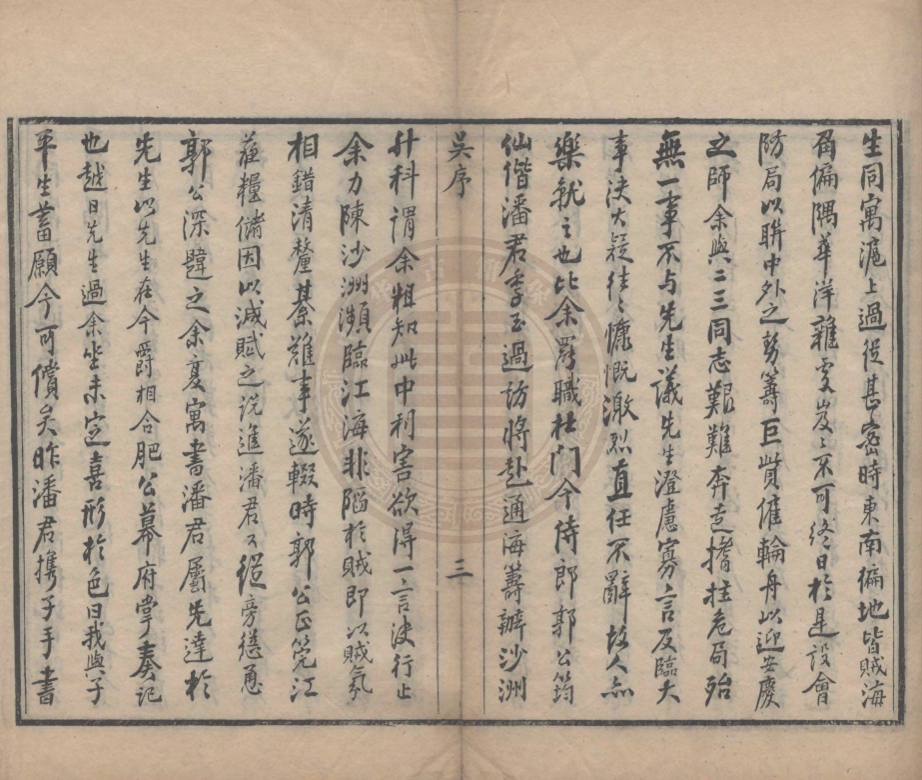 生同寓滬上過從甚密時東南徧地皆賊海
角偏隅華洋雜處岌〻不可終日於是設會
防局以聯中外之勢籌巨貲僱輪舟以迎安慶
之師余與二三同志艱難奔走撐拄危局殆
無一事不与先生議先生澄慮寡言及臨大
事決大疑往〻慷慨激烈直任不辭故人亦
樂就之也比余罷職杜門今侍郎郭公筠
仙偕潘君季玉過訪將赴通海籌辦沙洲
吳序
三
升科謂余粗知此中利害欲得一言決行止
余力陳沙洲瀕臨江海非陷於賊即以賊氛
相錯清釐綦難事遂輟時郭公正筦江
蘇糧儲因以減賦之說進潘君又從旁慫恿
郭公深韙之余复寓書潘君屬先達於
先生以先生在今爵相合肥公幕府掌奏記
也越日先生過余坐未定喜形於色曰我與子
平生蓄願今可償矣昨潘君攜子手書